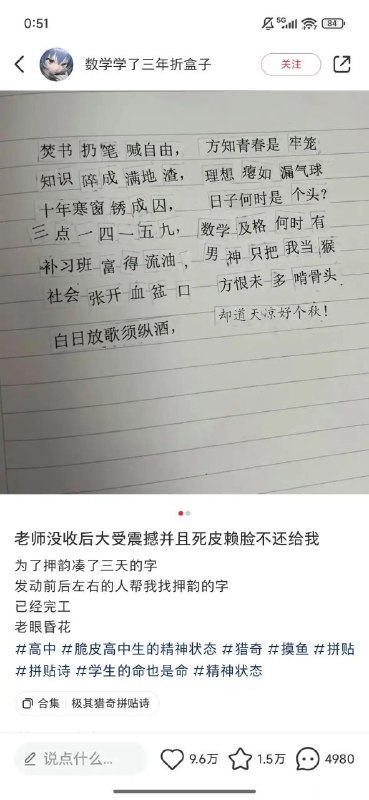 0:51
5G
84
数学学了三年折盒子
关注
焚书扔笔喊自由， 方知青春是牢笼
知识碎成满地渣， 理想瘪如漏气球
十年寒窗锈成囚， 日子何时是个头？
三点一四一五九， 数学及格何时有
补习班富得流油， 男神只把我当猴
社会张开血盆口 方恨未多啃骨头
白日放歌须纵酒， 却道天凉好个秋！
老师没收后大受震撼并且死皮赖脸不还给我
为了押韵凑了三天的字
发动前后左右的人帮我找押韵的字
已经完工
老眼昏花
#高中 #脆皮高中生的精神状态 #猎奇 #摸鱼 #拼贴
#拼贴诗 #学生的命也是命 #精神状态
合集 | 极其猎奇拼贴诗
说点什么...
9.6万
1.5万
4980